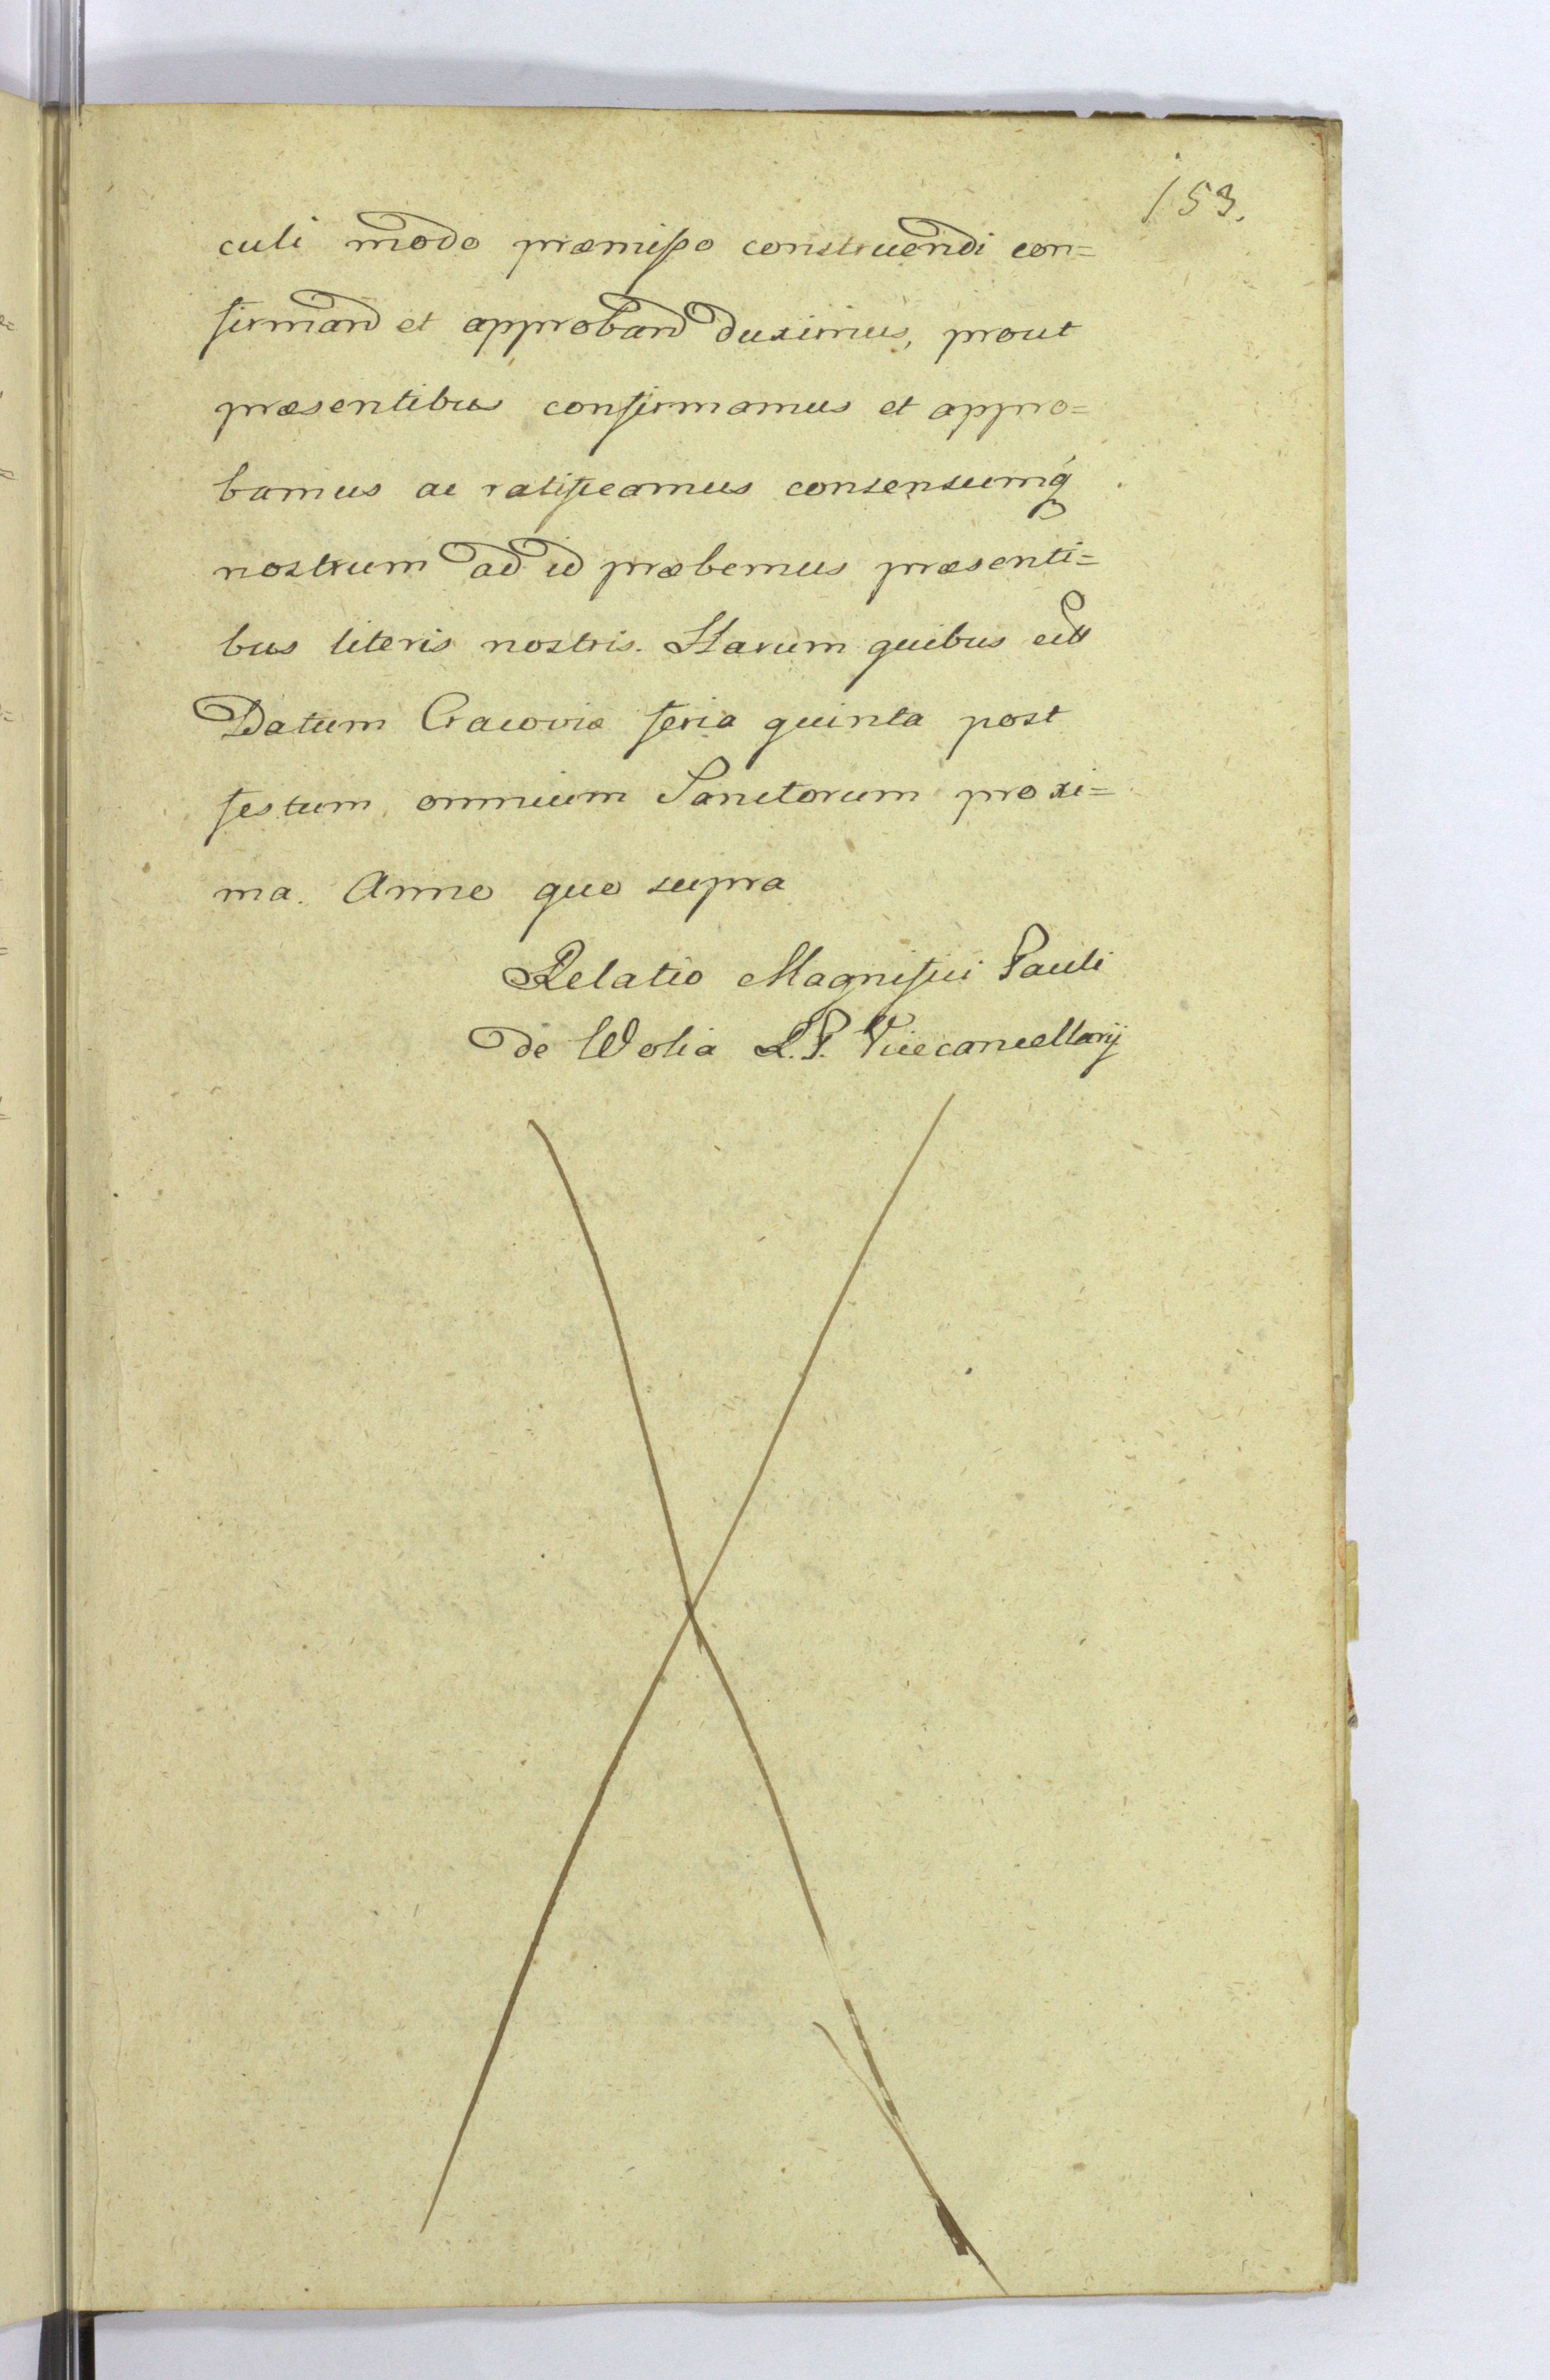 153.
culi modo præmisso construendi con=
firmand et approband duximus, prout
præsentibus confirmamus et appro=
bamus ac ratificamus consensumq
nostrum ad id præbemus præsenti=
bus literis nostris. Harum quibus ett
Datum Cracoviæ feria quinta post
festum omnium Sanctorum proxi=
ma. Anno quo supra
Relatio Magnifici Pauli
de Wolia R. P. Vicecancellarij